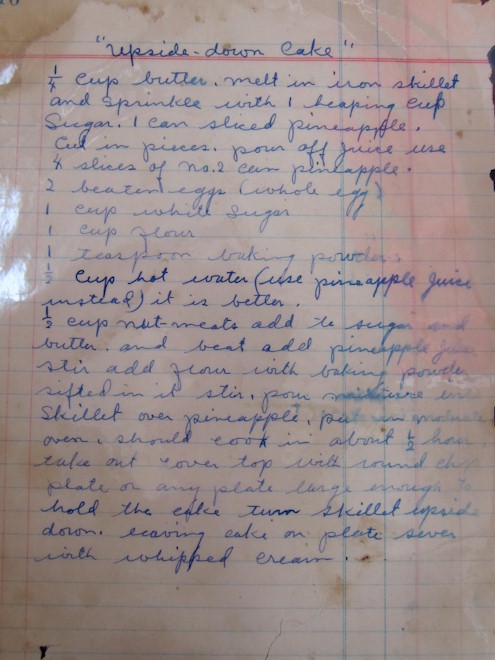 "Upside-down Cake"
1/4 cup butter. melt in iron skillet
and sprinkle with 1 heaping cup
Sugar. 1 can sliced pineapple.
Cut in pieces. pour off juice use
4 slices of no. 2 can pineapple.
2 beaten eggs (whole egg)
1 cup white sugar
1 cup flour
1 teaspoon baking powder.
1/2 cup hot water (use pineapple juice
instead) it is better.
1/2 cup nut-meats add to sugar and
butter. and beat add pineapple juice
stir add flour with baking powder
sifted in it stir. pour mixture in
Skillet over pineapple. put in moderate
oven. should cook in about 1/2 hour
take out cover top with round chop
plate or any plate large enough to
hold the cake turn skillet upside
down. leaving cake on plate sever
with whipped cream.